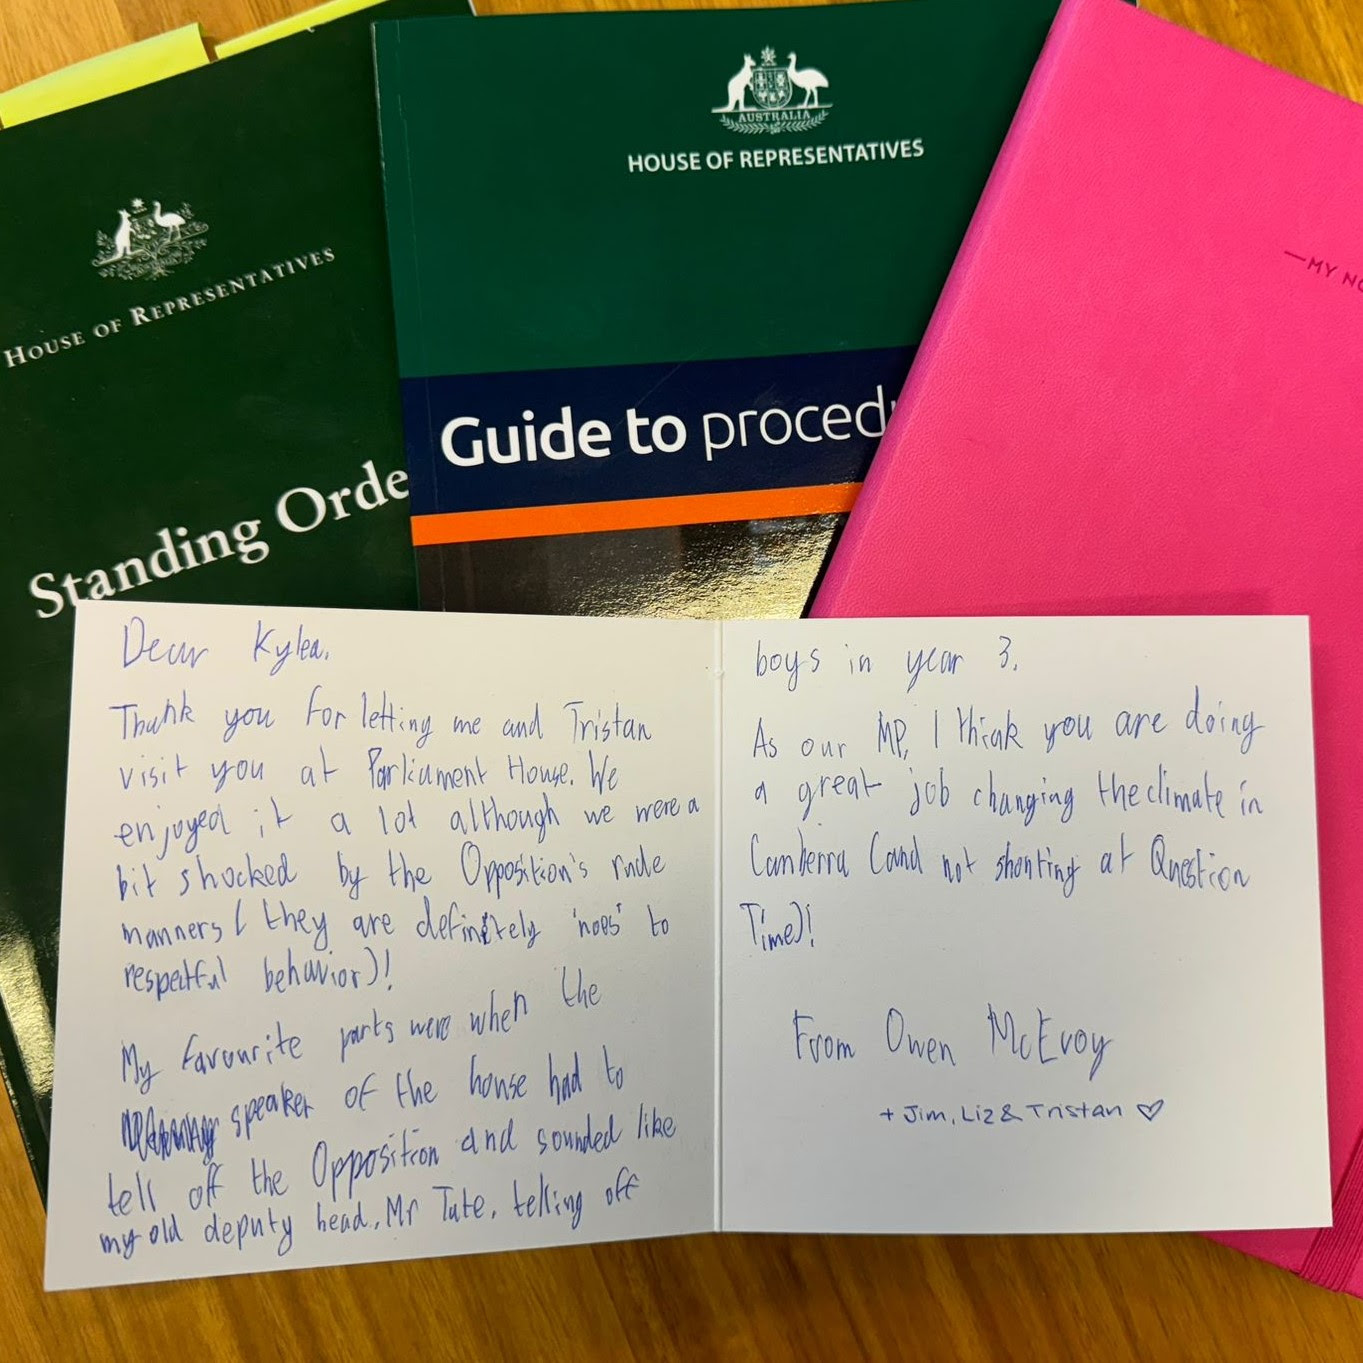 HOUSE OF REPRESENTATIVES
Standing Orde
AUSTRALIA
HOUSE OF REPRESENTATIVES
Guide to proced
—MY NO
Dear Kylea,
Thank you for letting me and Tristan
visit you at Parliament House. We
enjoyed it a lot although we were a
bit shocked by the Opposition's rude
manners (they are definitely 'noes' to
respectful behavior)!
My favourite parts were when the
speaker of the house had to
tell off the Opposition and sounded like
my old deputy head, Mr Tute, telling off
boys in year 3.
As our MP, I think you are doing
a great job changing the climate in
Canberra (and not shouting at Question
Time)!
From Owen McEvoy
+ Jim, Liz & Tristan ♡